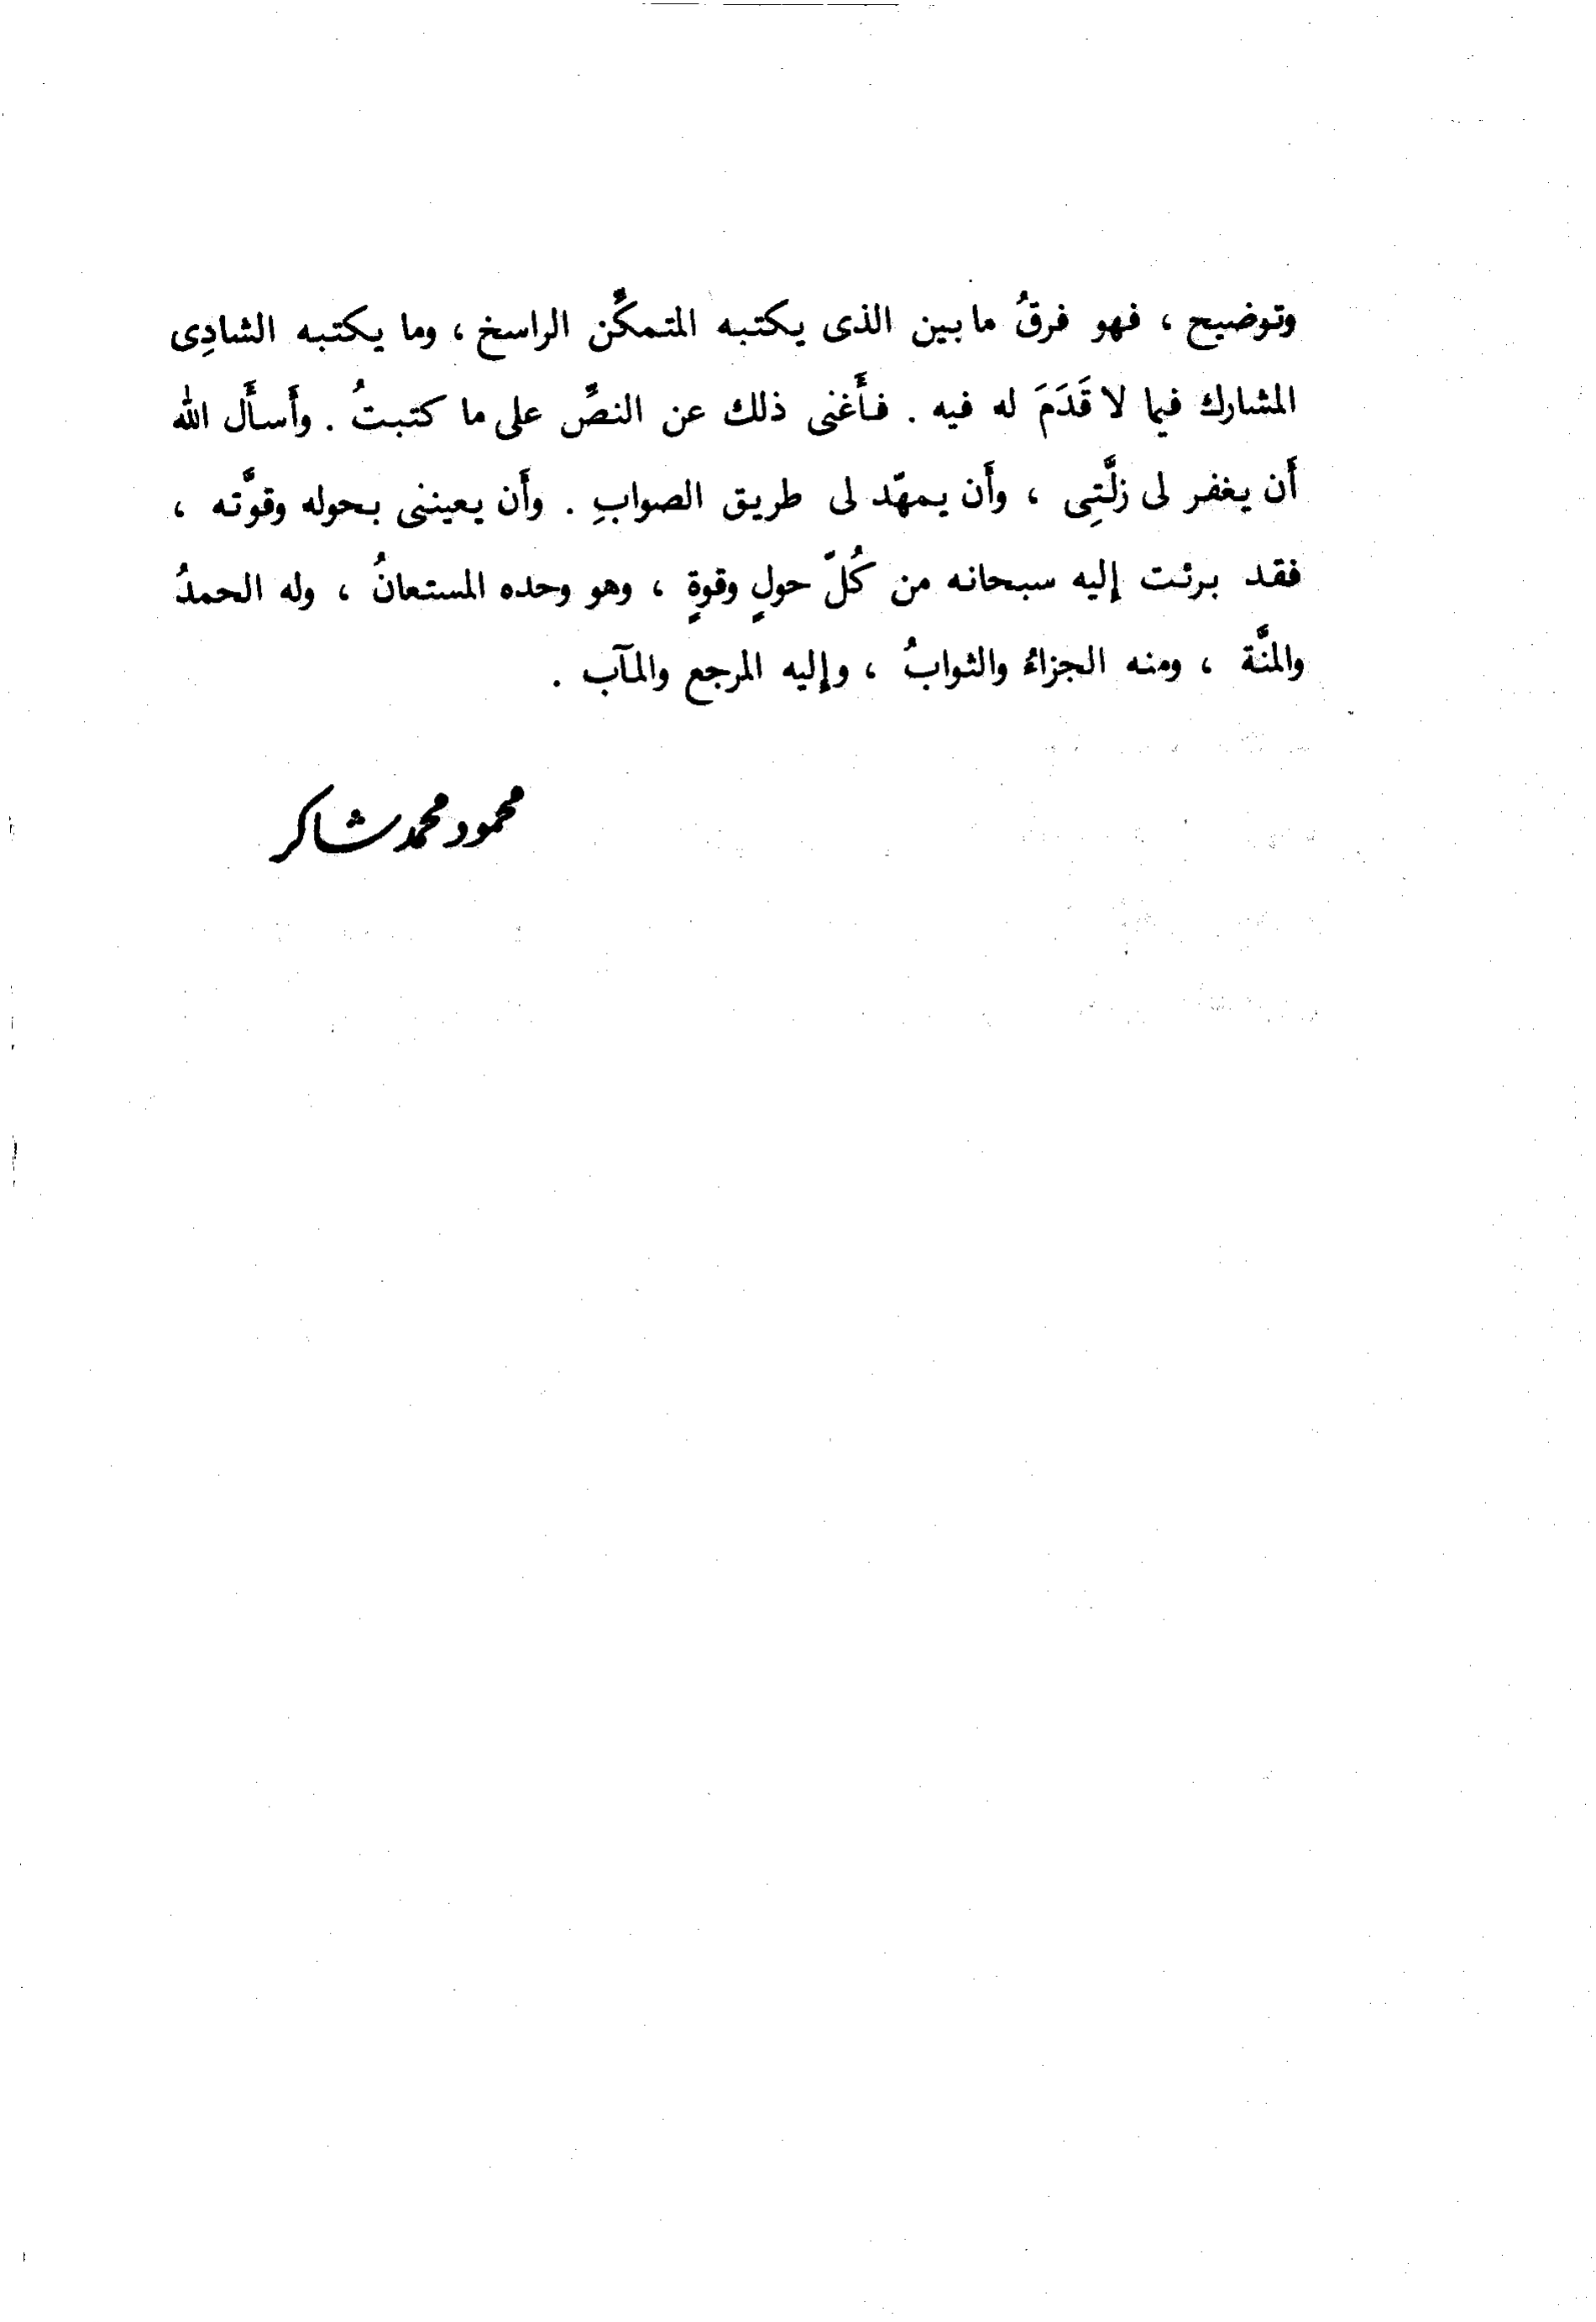 وتوضيح ، فهو فرقُ ما بين الذى يكتبه المتمكِّن الراسخ ، وما يكتبه الشادِى
المشارك فيما لا قَدَمَ له فيه . فأَغنى ذلك عن النصِّ على ما كتبتُ . وأَسأَل الله
أَن يغفر لى زلَّتِى ، وأَن يمهّد لى طريق الصوابِ . وأَن يعيننى بحوله وقوَّته ،
فقد برئت إليه سبحانه من كُلّ حولٍ وقوةٍ ، وهو وحده المستعانُ ، وله الحمدُ
والمنَّة ، ومنه الجزاءُ والثوابُ ، وإليه المرجع والمآب .
محمود محمد شاكر